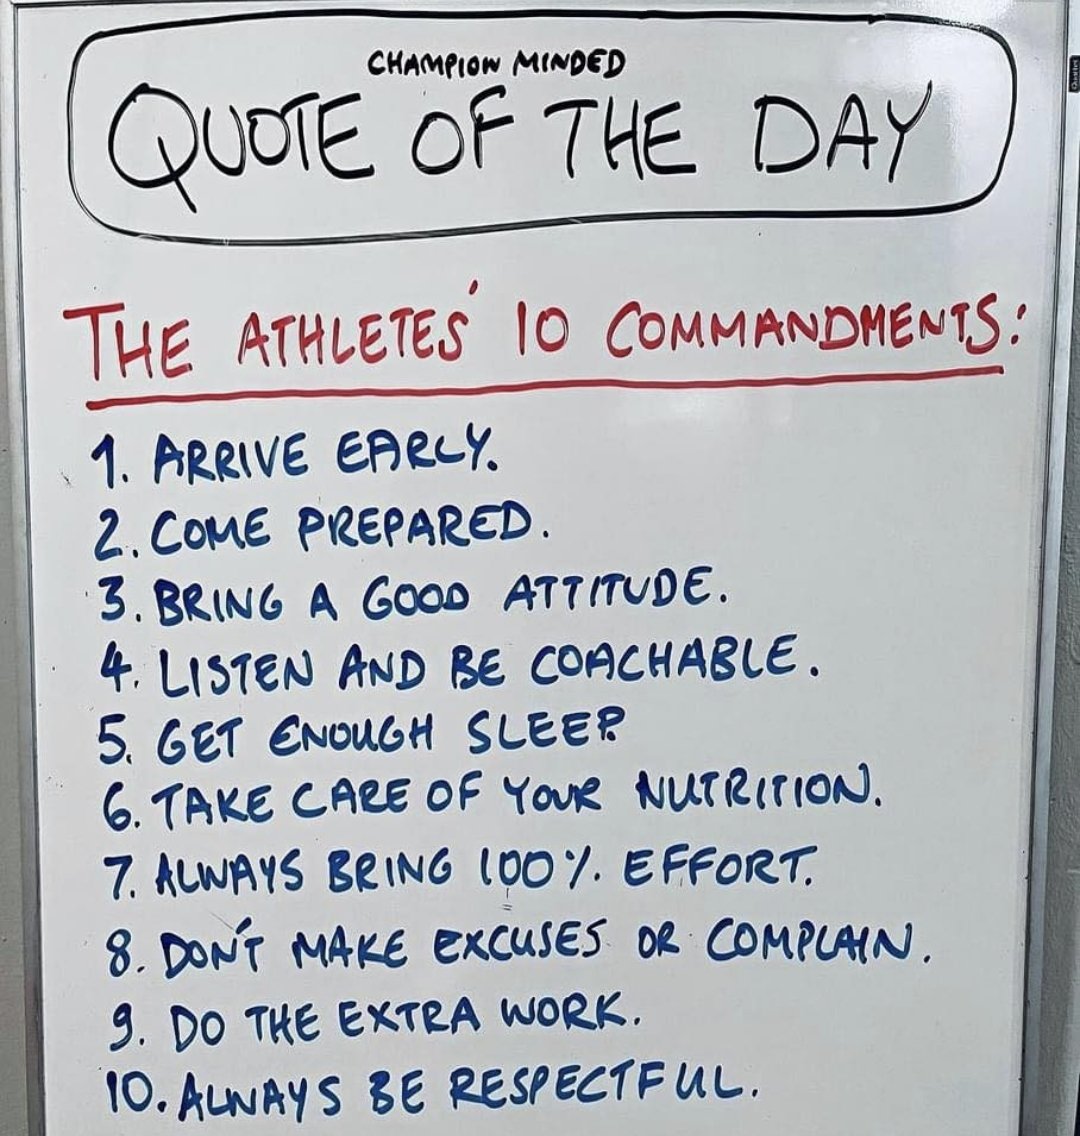 CHAMPION MINDED
QUOTE OF THE DAY
THE ATHLETES' 10 COMMANDMENTS:
1. ARRIVE EARLY.
2. COME PREPARED.
3. BRING A GOOD ATTITUDE.
4. LISTEN AND BE COACHABLE.
5. GET ENOUGH SLEEP.
6. TAKE CARE OF YOUR NUTRITION.
7. ALWAYS BRING 100% EFFORT.
8. DON'T MAKE EXCUSES OR COMPLAIN.
9. DO THE EXTRA WORK.
10. ALWAYS BE RESPECTFUL.